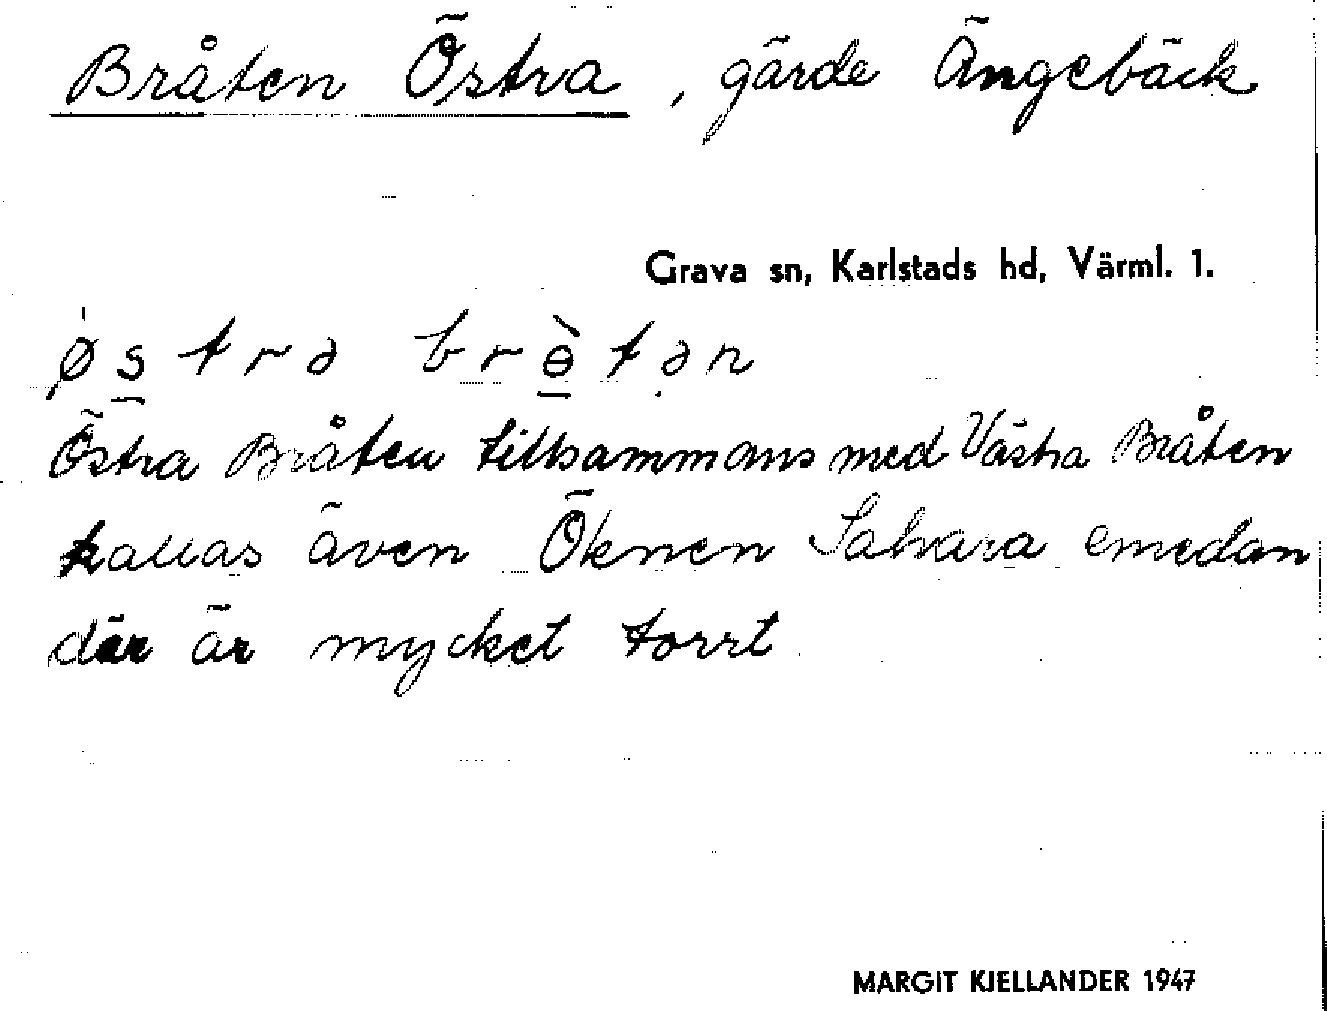 Bråten Östra, gärde Ängebäck
Grava sn, Karlstads hd, Värml. 1.
ǿs̲trə brɵ̲̀tən
Östra Bråten tillsammans med Västra Bråten
kallas även Öknen Sahara emedan
där är mycket torrt
MARGIT KJELLANDER 1947